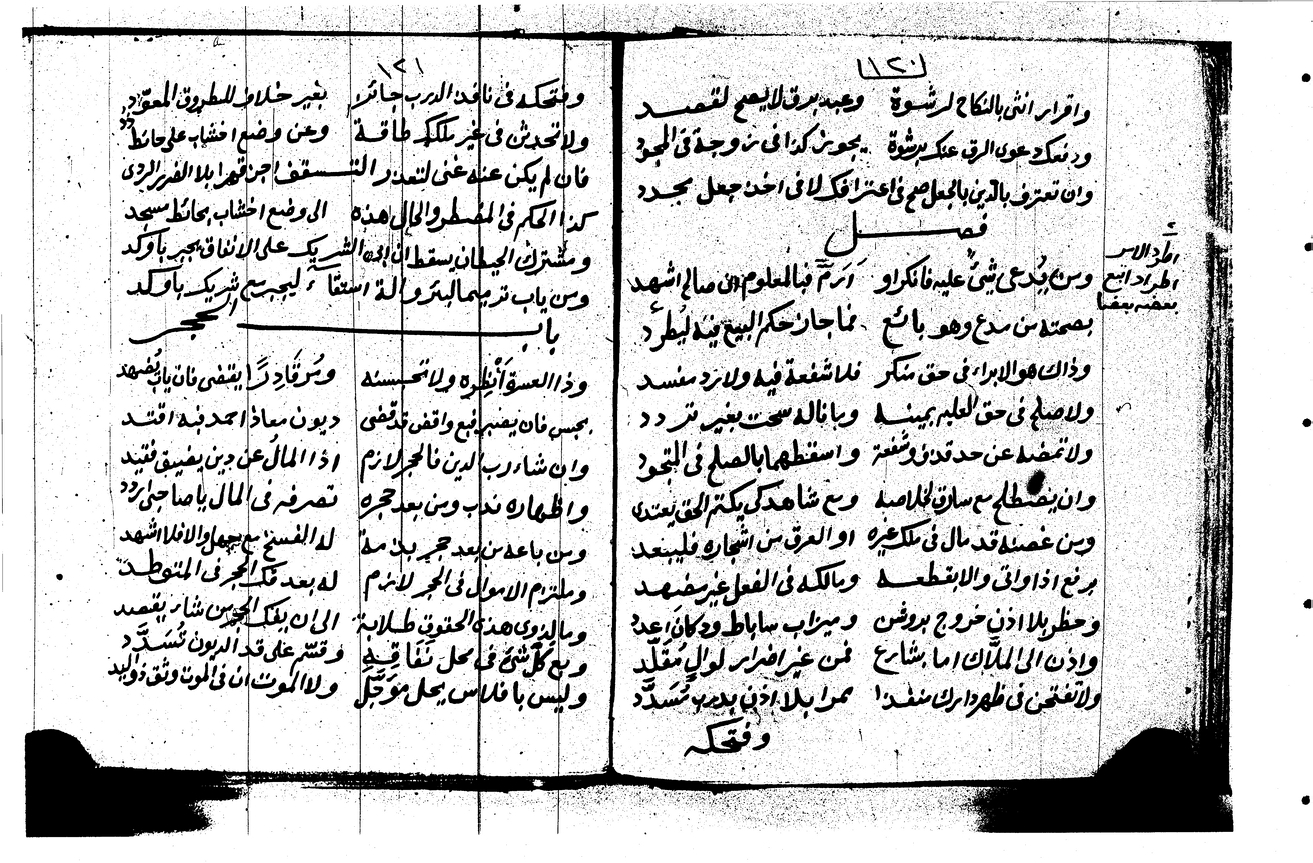 ١٢٠
واقرار انثى بالنكاح لرشوة وعبد برق لا يصح لقصد
ودفعك دعوى الرق عنك برشوة يجوز كذا فى زوجة فى المجود
وان تعترف بالدين بالجعل صح فى اعترافك لا فى اخذ جعل مجدد
فصل
ومن يدعى شئ عليه فانكر او ارم فبالمعلوم ان صالح اشهد
اطرد الامر
اطرادا تبع
بعضه بعضا
بصحته من مدع وهو بائع فما جاز حكم البيع فيه ليطرد
وذاك هو الابراء فى حق منكر فلا شفعة فيه ولا رد مفسد
ولا صلح فى حق العليم بمينه وما ناله سحت بغير تردد
ولا تمضه عن حد قذف وشفعة واسقطهما بالصلح فى المتجود
وان يصطلح مع سارق لخلاصه ومع شاهد كى يكتم الحق يعتدى
ومن غصنه قد مال فى ملك غيره او العرق من اشجاره فليبعد
برفع اذا واتى والا بقطعه ومالكه فى الفعل غير مضهد
وحظر بلا اذن خروج بروشن وميزاب ساباط ودكان اعدد
واذن الى الملاك اما بشارع فمن غير اضرار لوال مقلد
ولا تفتحن فى ظهر دارك منفذا ممرا بلا اذن بدرب مسدد
وفتحكه
١٢١
وفتحكه فى نافذ الدرب جائز بغير خلاف للطروق المعود
ولا تحدثن فى غير ملكك طاقة وعن وضع اخشاب على حائط
فان لم يكن عنه غنى لتعذر التسقف اجز قهرا بلا الضرر الردى
كذا الحكم فى المضطر والحال هذه الى وضع اخشاب بحائط مسجد
ومشترك الحيطان يسقط ان ابى الشريك على الانفاق يجبر باوكد
ومن ياب ترميما لبئر والة استقاء ليجبر مع شريك باوكد
باب الحجر
وذا العسرة انظره ولا تحبسنه ومر قادرا يقضى فان ياب يضهد
بحبس فان يصبر فبع واقض قد قضى ديون معاذ احمد فبه اقتد
وان شاء رب الدين فالحجر لازم اذا المال عن دين يضيق فقيد
واظهاره ندب ومن بعد حجره تصرفه فى المال يا صاحبى اردد
ومن باعه من بعد حجر بذمة له الفسخ مع جهل والا فلا اشهد
وملتزم الاموال فى الحجر لازم له بعد فك الحجر فى المتوطد
وما لذوى هذى الحقوق طلابة الى ان يفك الحجر من شاء يقصد
وبع كل شئ فى محل نفاقه وقسم على قد الديون تسدد
وليس بافلاس يحل مؤجل ولا الموت ان فى الموت وثق ذو اليد